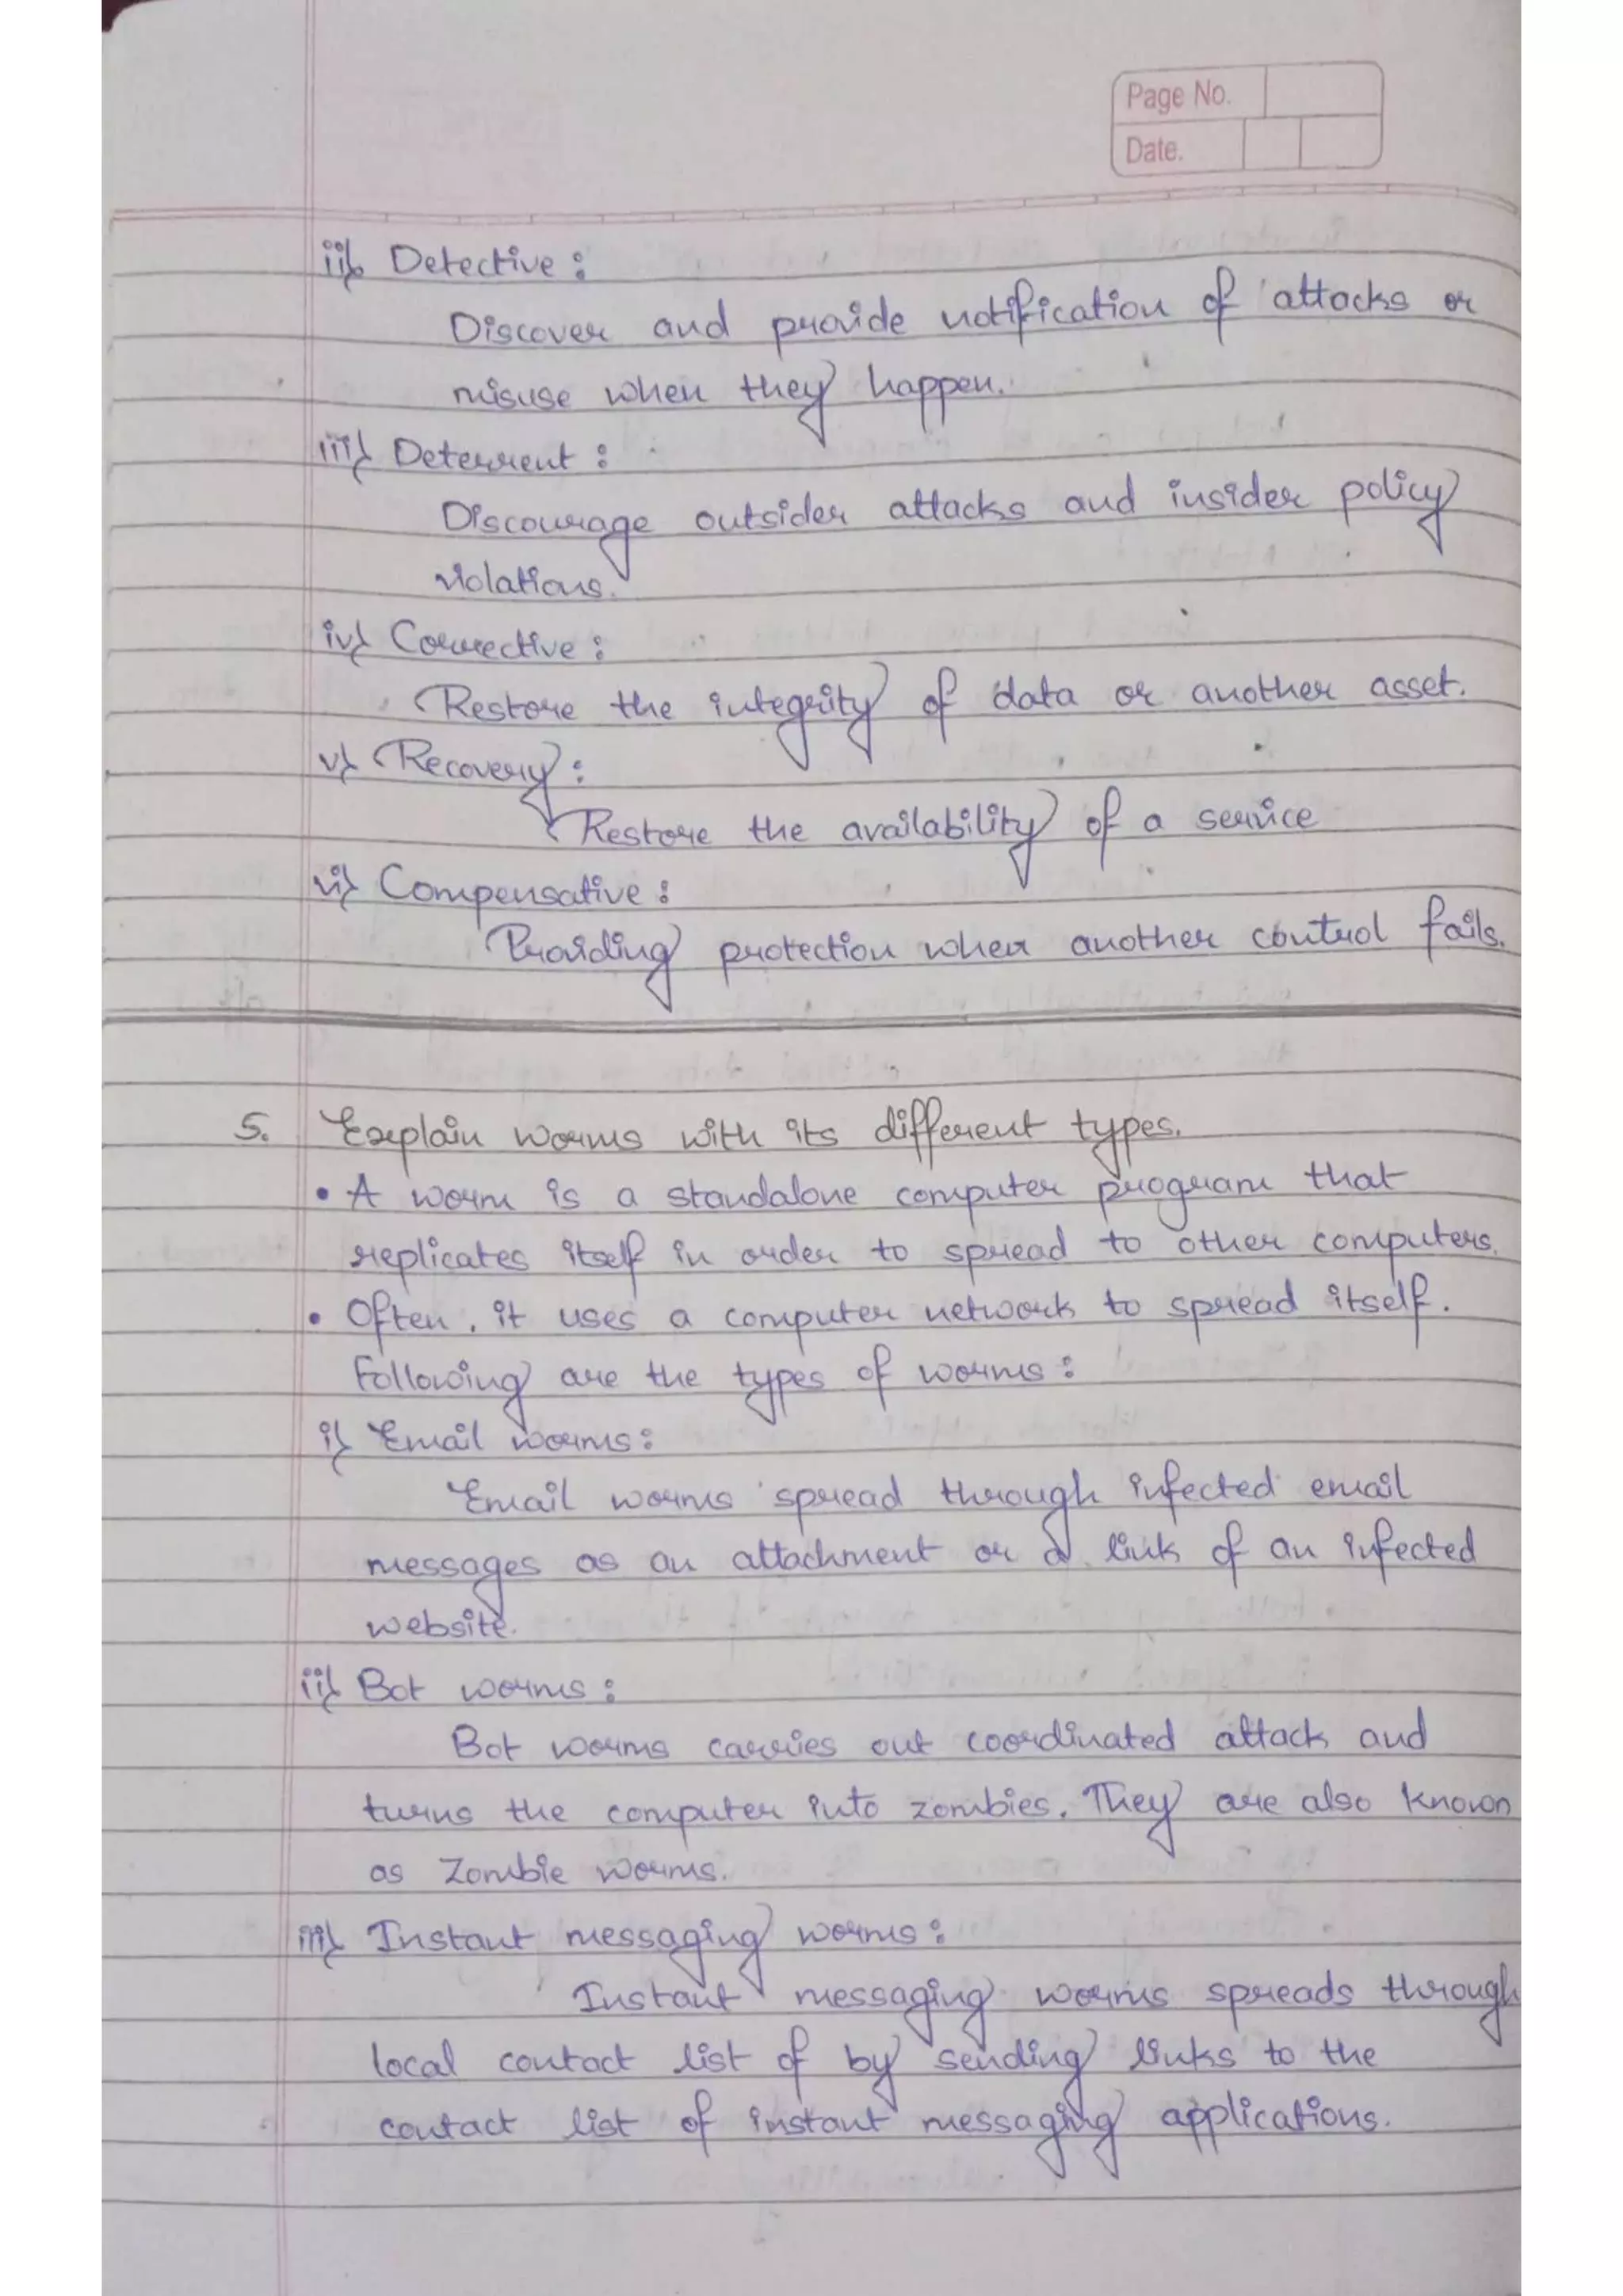 Page No.
Date.
ii) Detective :
Discover and provide notification of attacks or
misuse when they happen.
iii) Deterrent :
Discourage outsider attacks and insider policy
violations.
iv) Corrective :
Restore the integrity of data or another asset.
v) Recovery :
Restore the availability of a service
vi) Compensative :
Providing protection when another control fails.
5. Explain worms with its different types.
• A worm is a standalone computer program that
replicates itself in order to spread to other computers.
• Often, it uses a computer network to spread itself.
Following are the types of worms :
i) Email worms :
Email worms spread through infected email
messages as an attachment or a link of an infected
website.
ii) Bot worms :
Bot worms carries out coordinated attack and
turns the computer into zombies. They are also known
as Zombie worms.
iii) Instant messaging worms :
Instant messaging worms spreads through
local contact list of by sending links to the
contact list of instant messaging applications.